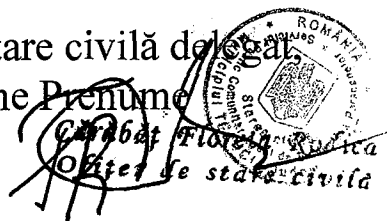 tare civilă delegat,
ne Prenume
Cărăbăț Florela Rodica
Ofițer de stare civilă
ROMÂNIA